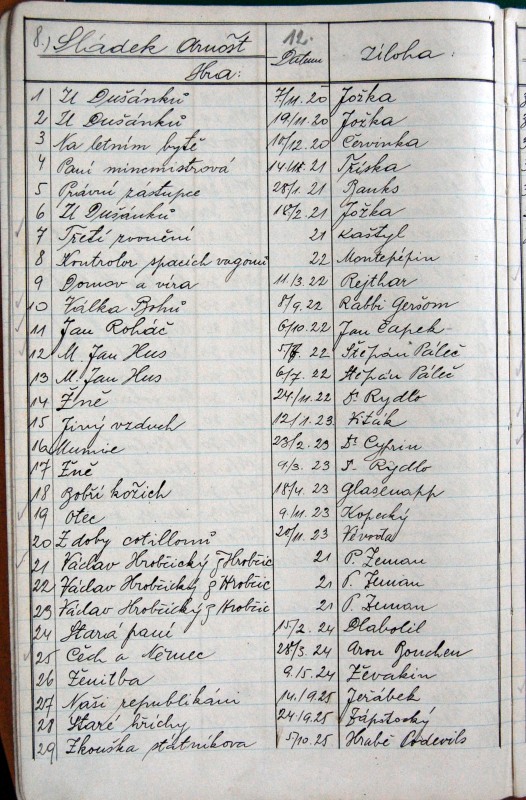 8.) Sládek Arnošt 12.
Hra: Datum Úloha:
1 U Dušánků 7/11.20 Jožka
2 U Dušánků 19/11.20 Jožka
3 Na letním bytě 18/12.20 Červinka
4 Paní mincmistrová 21 Tříska
5 Právní zástupce 28/1.21 Banks
6 U Dušánků 2.21 Jožka
7 Třetí zvonění 21 Kaštyl
8 Kontrolor spacích vagonů 22 Montepépin
9 Domov a víra 11/3.22 Rejthar
10 Válka Bohů 8/9.22 Rabbi Geršom
11 Jan Roháč 6/10.22 Jan Čapek
12 M. Jan Hus 5/7.22 Štěpán Páleč
13 M. Jan Hus 6/7.22 Štěpán Páleč
14 Žně 24/11.22 Dr Rydlo
15 Jiný vzduch 12/1.23. Kišák
16 Mumie 23/2.23 Dr Cyprin
17 Žně 9/3.23 Dr Rydlo
18 Bobří kožich 18/4.23 Glasenapp
19 Otec 9/11.23 Kopecký
20 Z doby cotillonů 20/11.23 Vévoda
21 Václav Hrobčický z Hrobčic 21 P. Zeman
22 Václav Hrobčický z Hrobčic 21 P. Zeman
23 Václav Hrobčický z Hrobčic 21 P. Zeman
24 Stará paní 15/2.24 Dlabolil
25 Čech a Němec 28/3.24 Aron
26 Ženitba 9.15.24 Ževakin
27 Naši republikáni 14.1925 Jeřábek
28 Staré hříchy 24.1925 Zápotocký
29 Zkouška státníkova 5/10.25 Hrabě Podevils